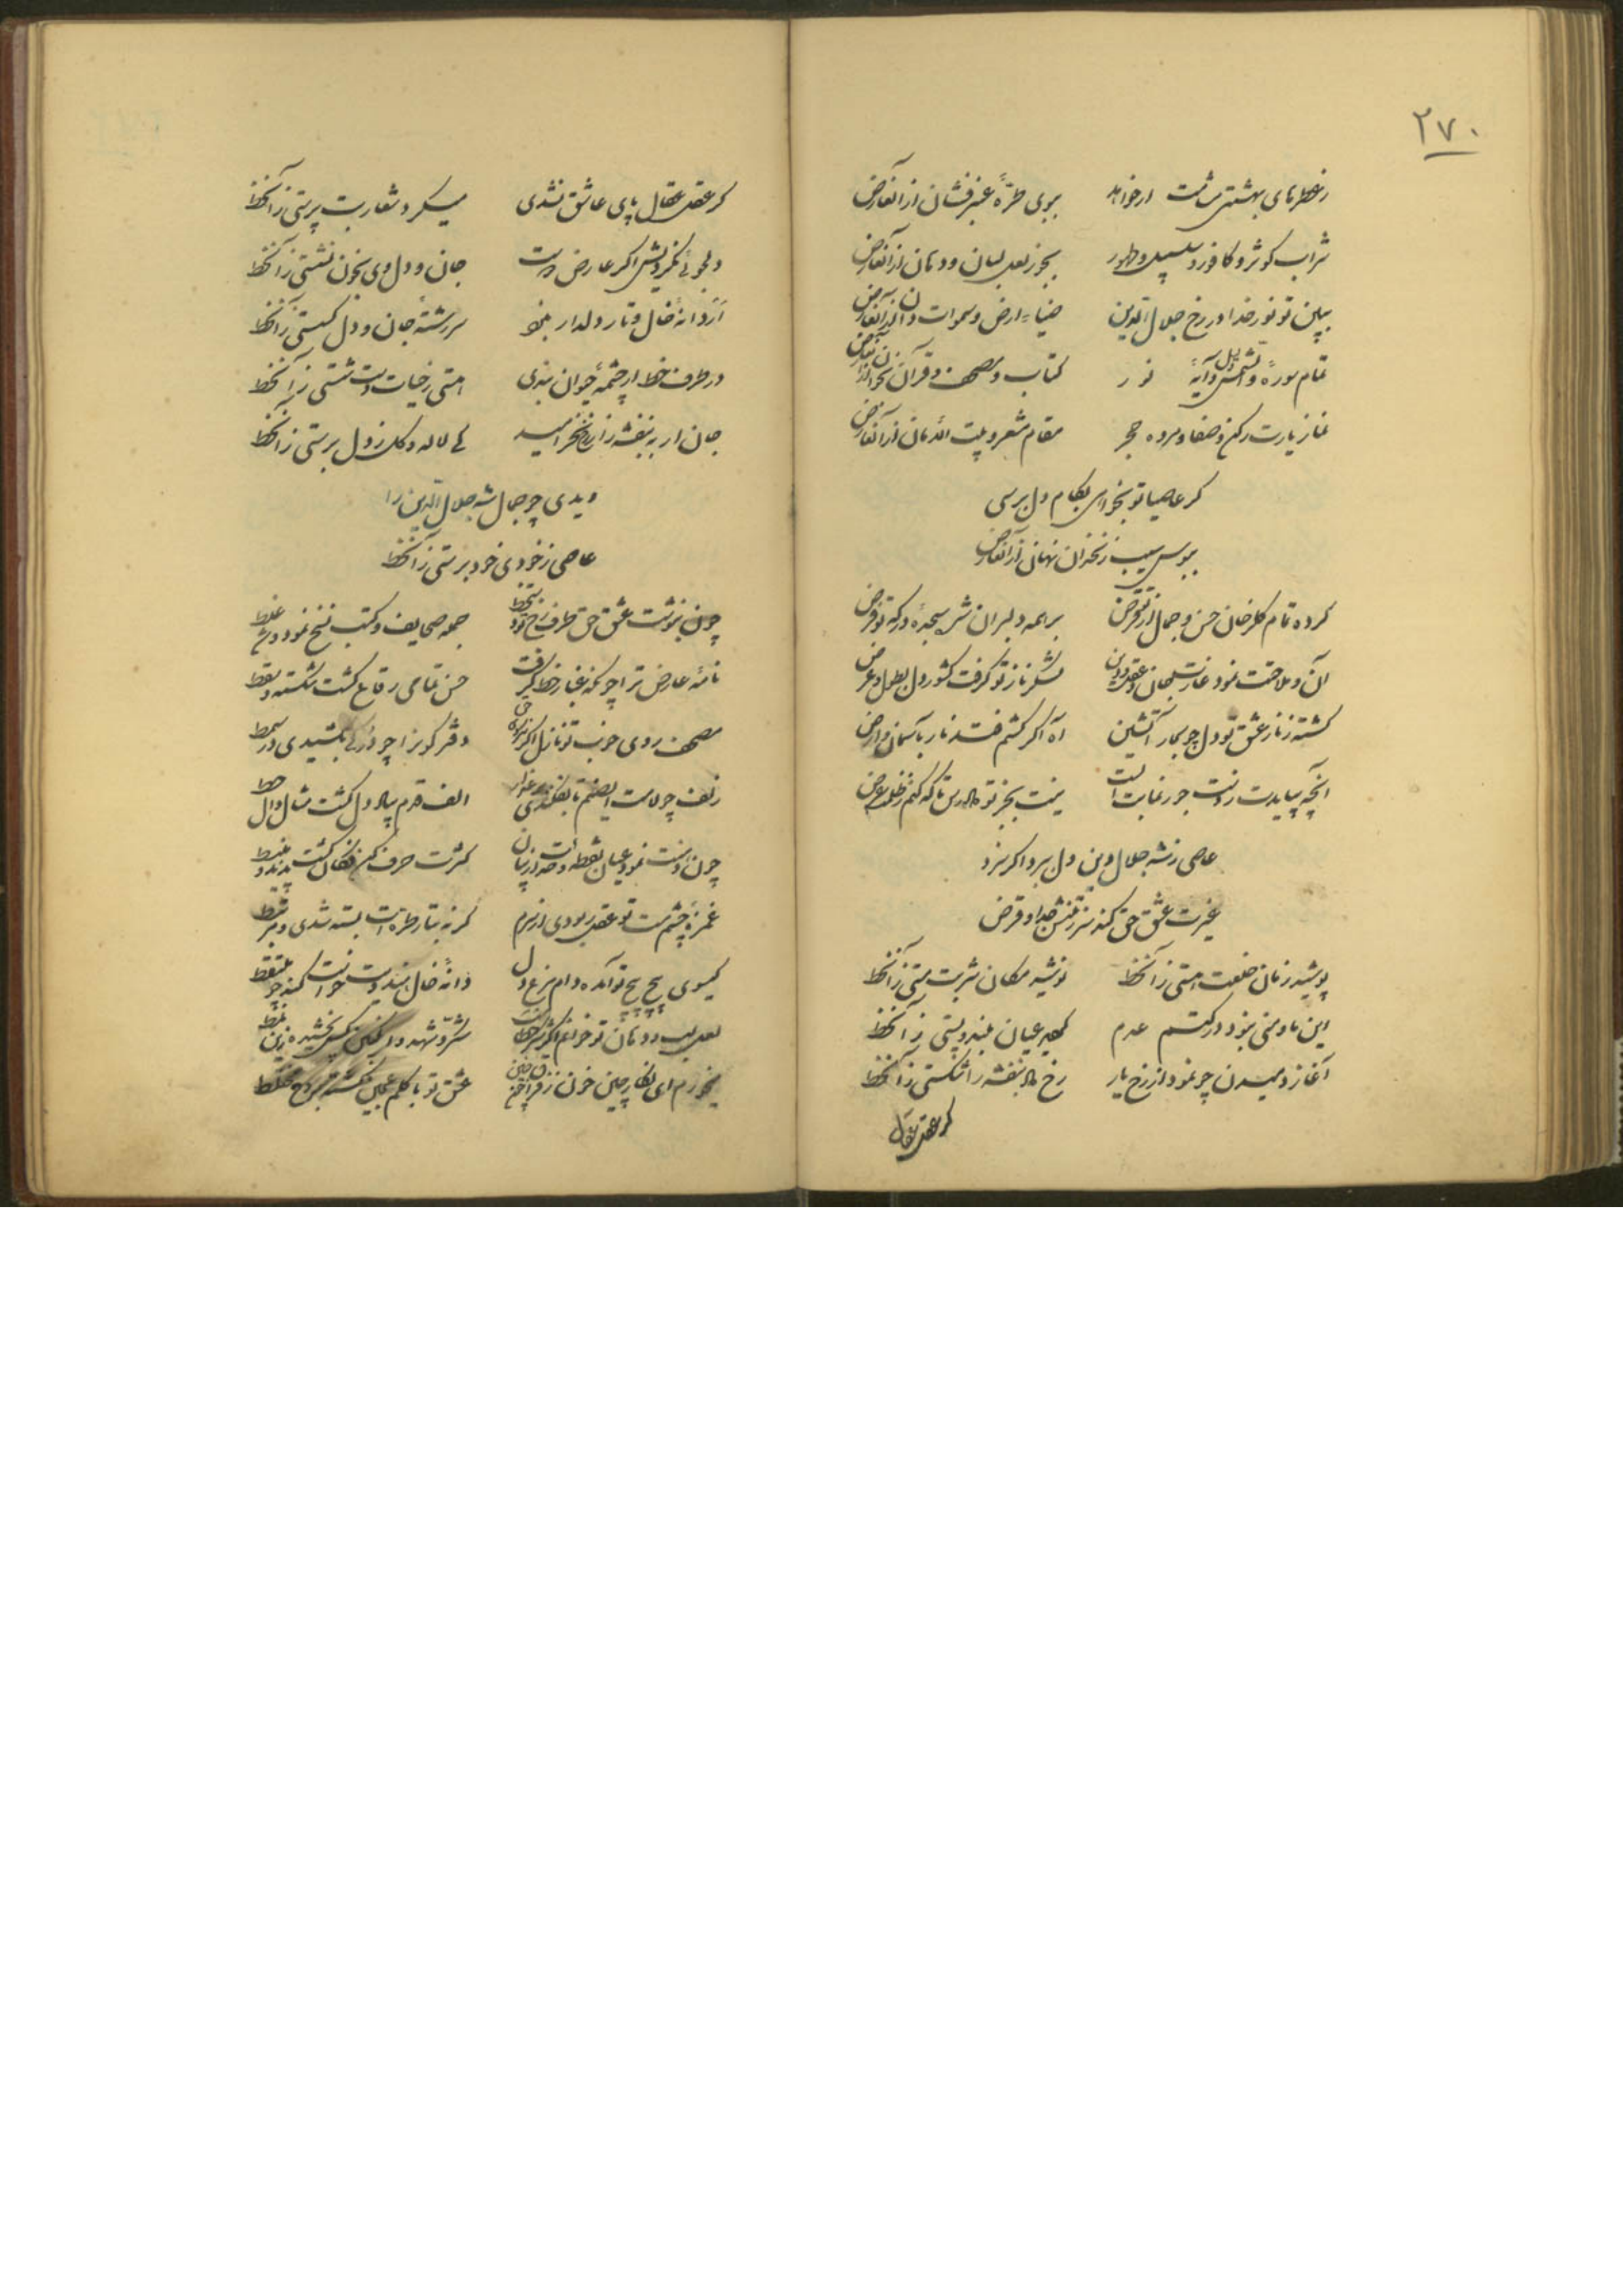 ۲۷۰
ز عطرهای بهشتی مشامت ار خواهد بوی طرهٔ عنبرفشان از آنعارض
شراب کوثر و کافور و سلسبیل و طهور بجز لعل لبان و دهان از آنعارض
ببین تو نور خدا در رخ جلال الدین ضیاء ارض و سموات از آنعارض
تمام سورهٔ والشمس و آیهٔ نور کتاب و مصحف و قرآن بخوان از آنعارض
نماز زیارت رکن و صفا و مروه حجر مقام مشعر و بیت الله دان از آنعارض
گر عاصیا تو بخواهی بکام دل برسی
ببوس سیب زنخدان نهانی از آنعارض
کرده تمام گلرخان حسن و جمال از تو قرض بر همه دلبران شده سجدهٔ درگه تو فرض
آن و ملاحت نمود غارت جان و عقل و دین لشکر ناز تو گرفت کشور دل بطول و عرض
گشته ز نار عشق تو دل چو بحار آتشین آه اگر کشم فتد نار بآسمان و ارض
آنچه بیایدت ز دست جور نمایت نیست بجز تو دادرس تا که کنم ز ظلم عرض
عاصی ز شه جلال دین دل ببرد اگر برد
غیرت عشق حق کند سر ز تنش جدا و قرض
پوشید زمان خلعت هستی ز آنخط نوشید مکان شربت مستی ز آنخط
این ما و منی بنود در کتم عدم گردید عیان بلند و پستی ز آنخط
آغاز دمیدن چو نمود از رخ یار رخ لاله بنفشه را شکستی ز آنخط
گر عقل عقال
گر عقل عقال پای عاشق نشدی میکرد شعار بت پرستی ز آنخط
دلجوئی نکردیش اگر عارض دوست جان و دل وی بخون نشستی ز آنخط
از دانهٔ خال و تار دلدار سررشتهٔ جان و دل گسستی ز آنخط
در طرف خط ار چشمهٔ حیوان بندی هستی ز حیات دست شستی ز آنخط
جان ار به بنفشه زار رخ نخرامید کی لاله و گل ز دل برستی ز آنخط
دیدی چو جمال شه جلال الدین را
عاصی ز خودی خود برستی ز آنخط
چون بنوشت عشق حق طرف رخ تو خط جمله صحایف و کتب نسخ نمود و غلط
نامهٔ عارض ترا چونکه غبار خط گرفت حسن تمامی رقاع گشت شکسته و سقط
مصحف روی خوب تو نازل اگر دفتر کون را چو در بکشیدی در سمط
زلف چو لامت ای صنم تا بفکندی الف قدم ببار دل گشت مثال دال
چون دهنت نمود عیان نقطهٔ وحدت در بیان کثرت حرف کن فکان گشت پدید و منبسط
غمزهٔ چشم مست تو عقل ربودی از سرم گر نه بتار طره ات بسته شدی و مرتبط
گیسوی پیچ پیچ تو آمده دام مرغ دل دانهٔ خال هندویت خواست کند چو ملتقط
لعل لب و دهان تو خوانم اگر شکر و شهد و انگبین کس نچشیده زین نمط
میخورم ای نگار چین خون ز فراق عشق تو با گلم عجین گشته بروح مختلط